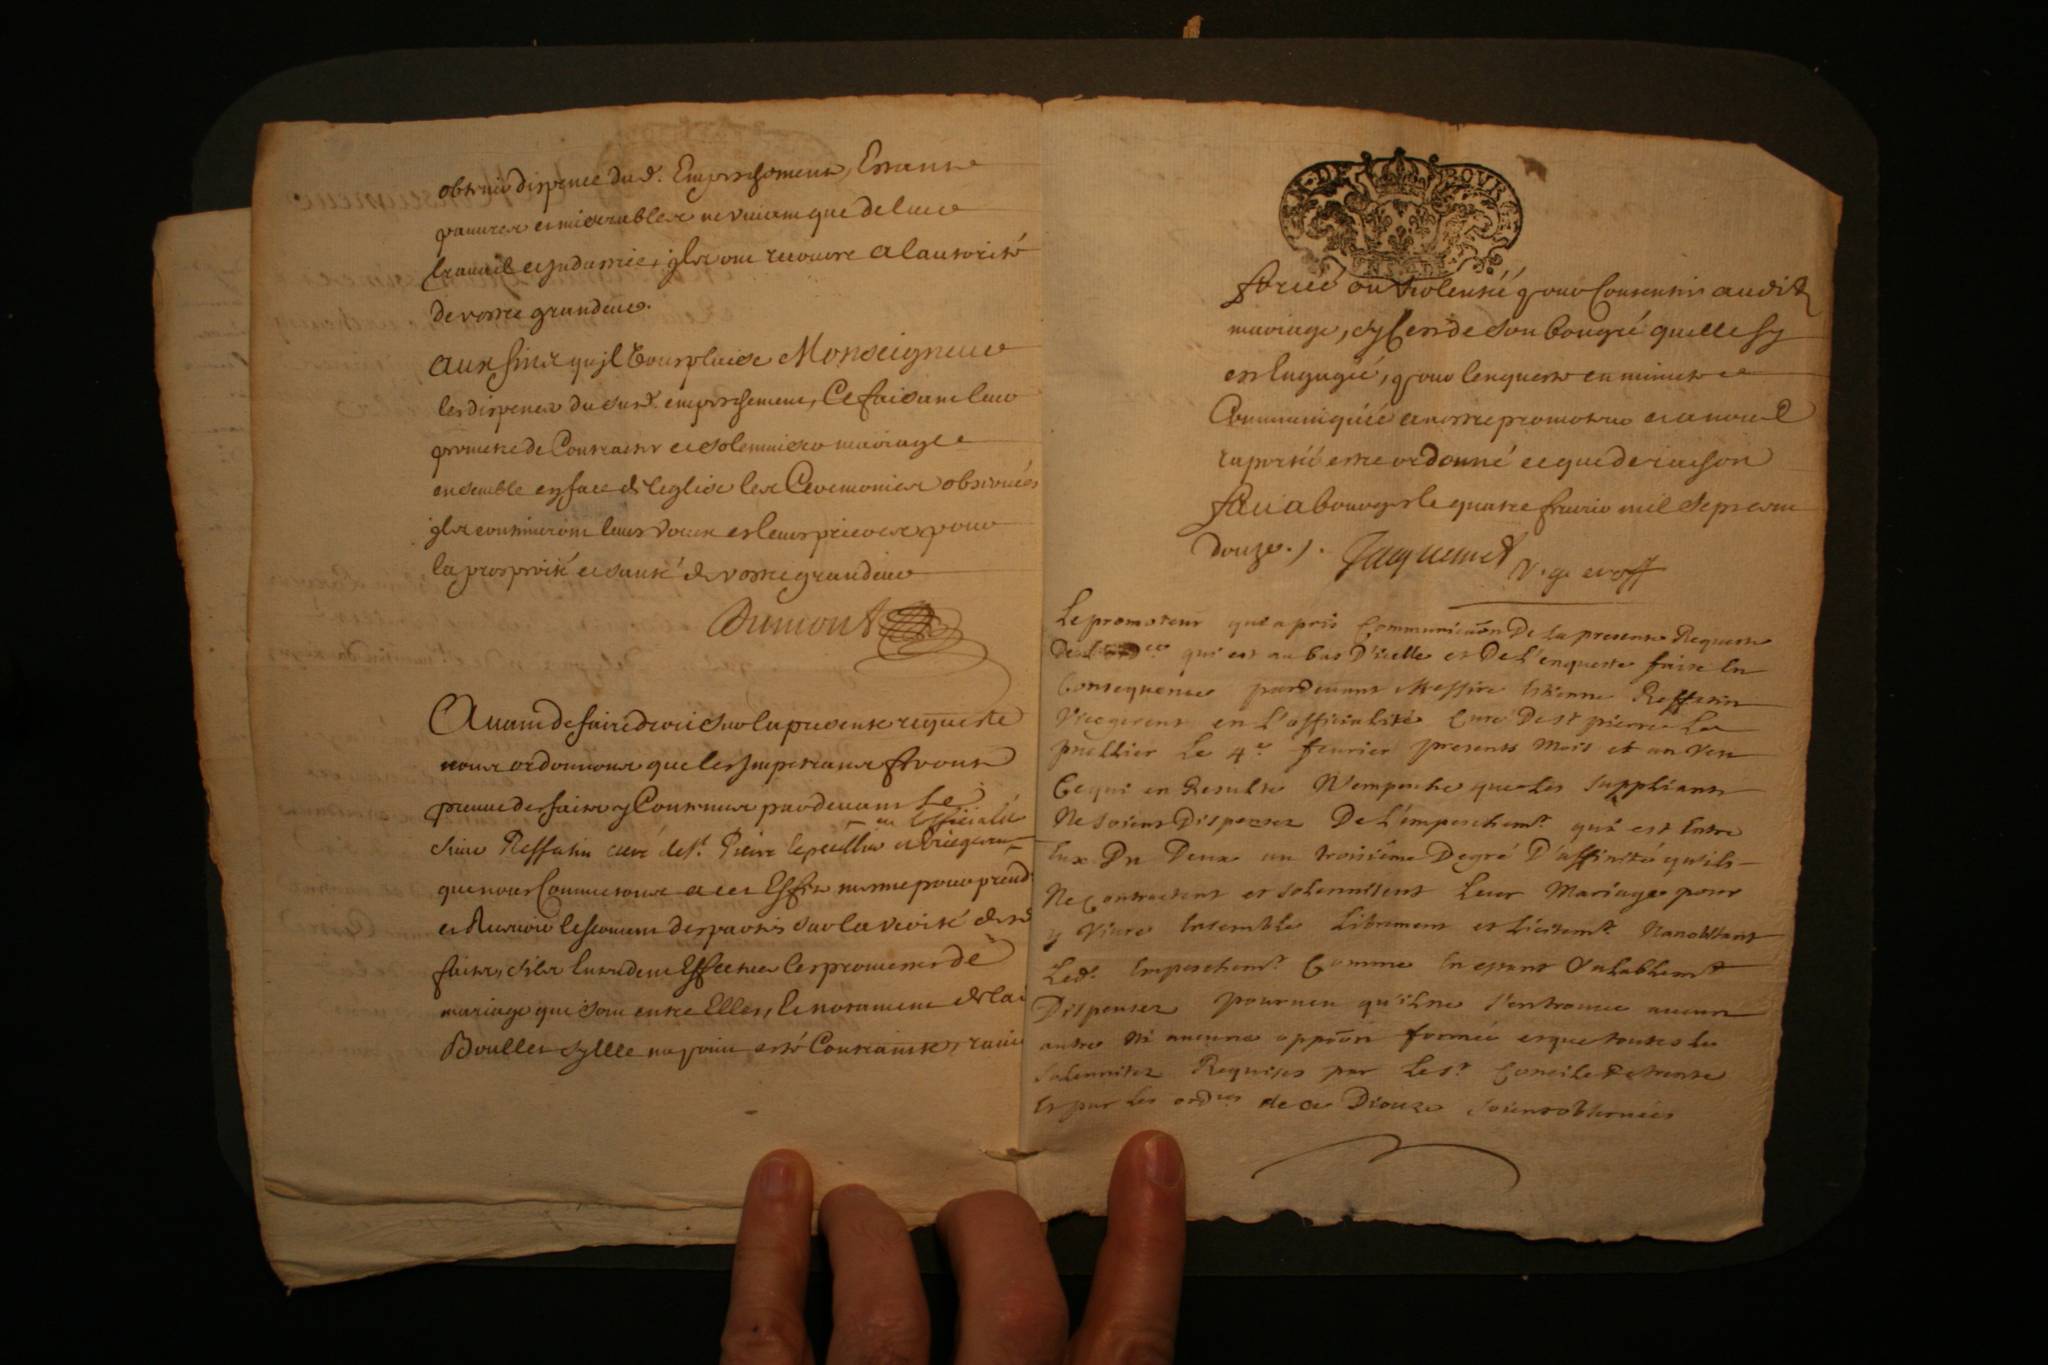 obtenir dispence du d. Empeschement, Estant
pauures et miserables ne viuant que de leur
trauail et jndustrie, jls ont recours a lautorité
de vostre grandeur.
aux fins qujl vous plaise Monseigneur
les dispencer du susd. empeschement, Ce faisant leur
promettre de Contracter et solemniser mariage
ensemble en face de leglise les Ceremonies obseruées
jls continuront leurs voeux et leurs prieres pour
la prosperité et santé de vostre grandeur
Dumont
Auant de faire droit sur la presente requeste
nous ordonnons que les Impetrans feront
preuue des faits y Contenus pardeuant Le
en lofficialité
sieur Reffatin curé de St. Pierre le puillier et Vicegerant
que nous Commetons a cet Effet mesme pour prendre
et Receuoir le serment des parties sur la verité desd
faits, sils entendent Effectuer les promesses de
mariage qui sont entre Elles, et notament de la
Boullet sy Elle na point esté Contrainte, rauie
GEN. DE BOURGES
forcée ou violentée pour Consentir audit
mariage, sy Cest de son bon gré quelle sy
est Engagée, pour lenqueste en minute
Communiquée a nostre promoteur et a nous
raportée estre ordonné ce que de raison
fait a bourges le quatre feurier mil sept cent
douze ./. Jacquemet
v. g. et off
Le promoteur qui a pris Communicaōn De la presente Requeste
De l'ordce qui est au bas D'icelle et De L'enqueste faite En
Consequence pardeuant Messire Estienne Reffatin
Vicegerent en L'officialité Curé De St pierre Le
puellier Le 4e feurier present Mois et an Veu
Ce qui en Resulte N'empesche que Les Suppliants
Ne soient Dispensez De L'empeschemt. qui est Entre
Eux Du Deux au troisiême Degré D'affinité qu'ils
Ne Contractent et solennisent Leur Mariage pour
y Viure Ensemble Librement et Licitemt. Nonobstant
Led. Empeschemt. Comme En estant Valablemt
Dispensez pourueu qu'il ne s'en trouue aucun
autre Ni aucune oppōon formée et que toutes les
solennitez Requises par Le St. Concile de trente
Et par Les ordces de ce Dioceze soient obseruées